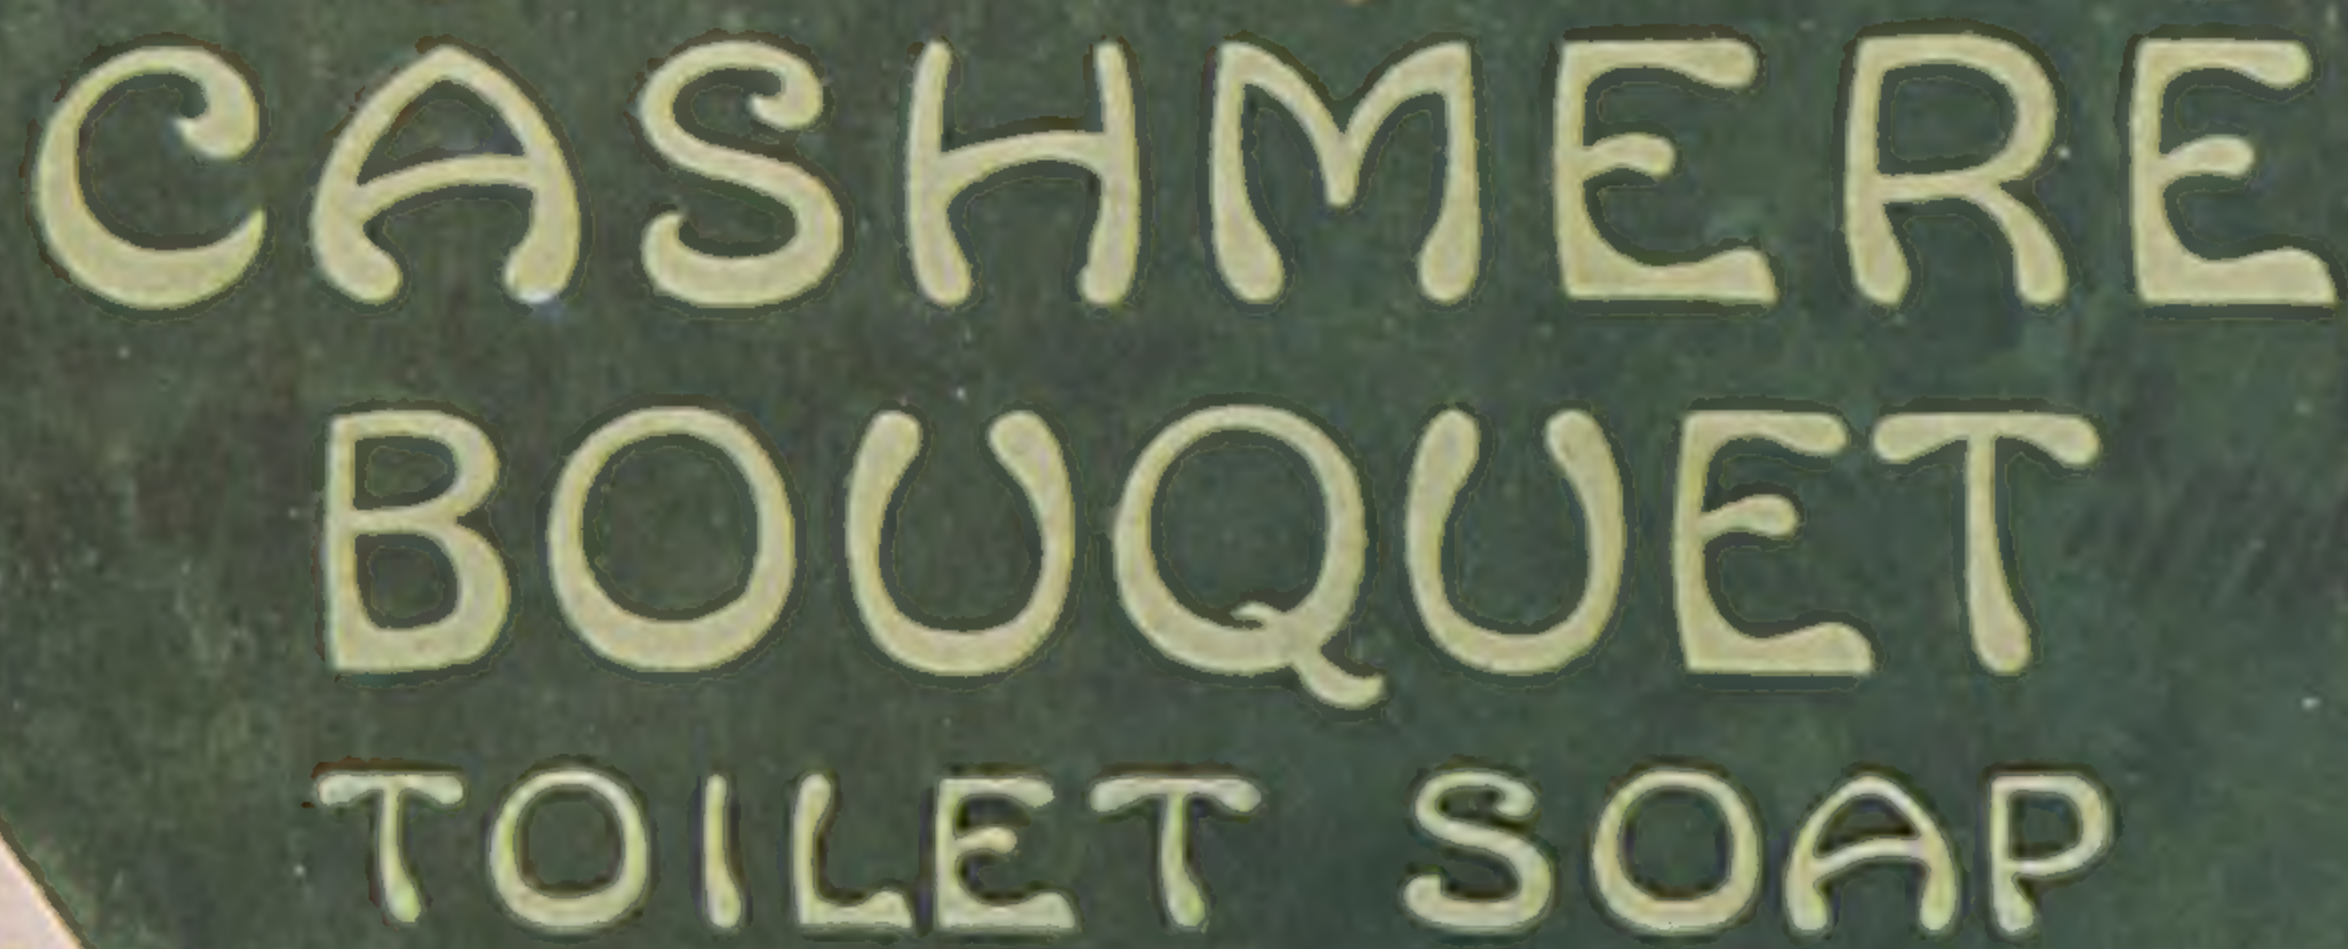 CASHMERE
BOUQUET
TOILET SOAP